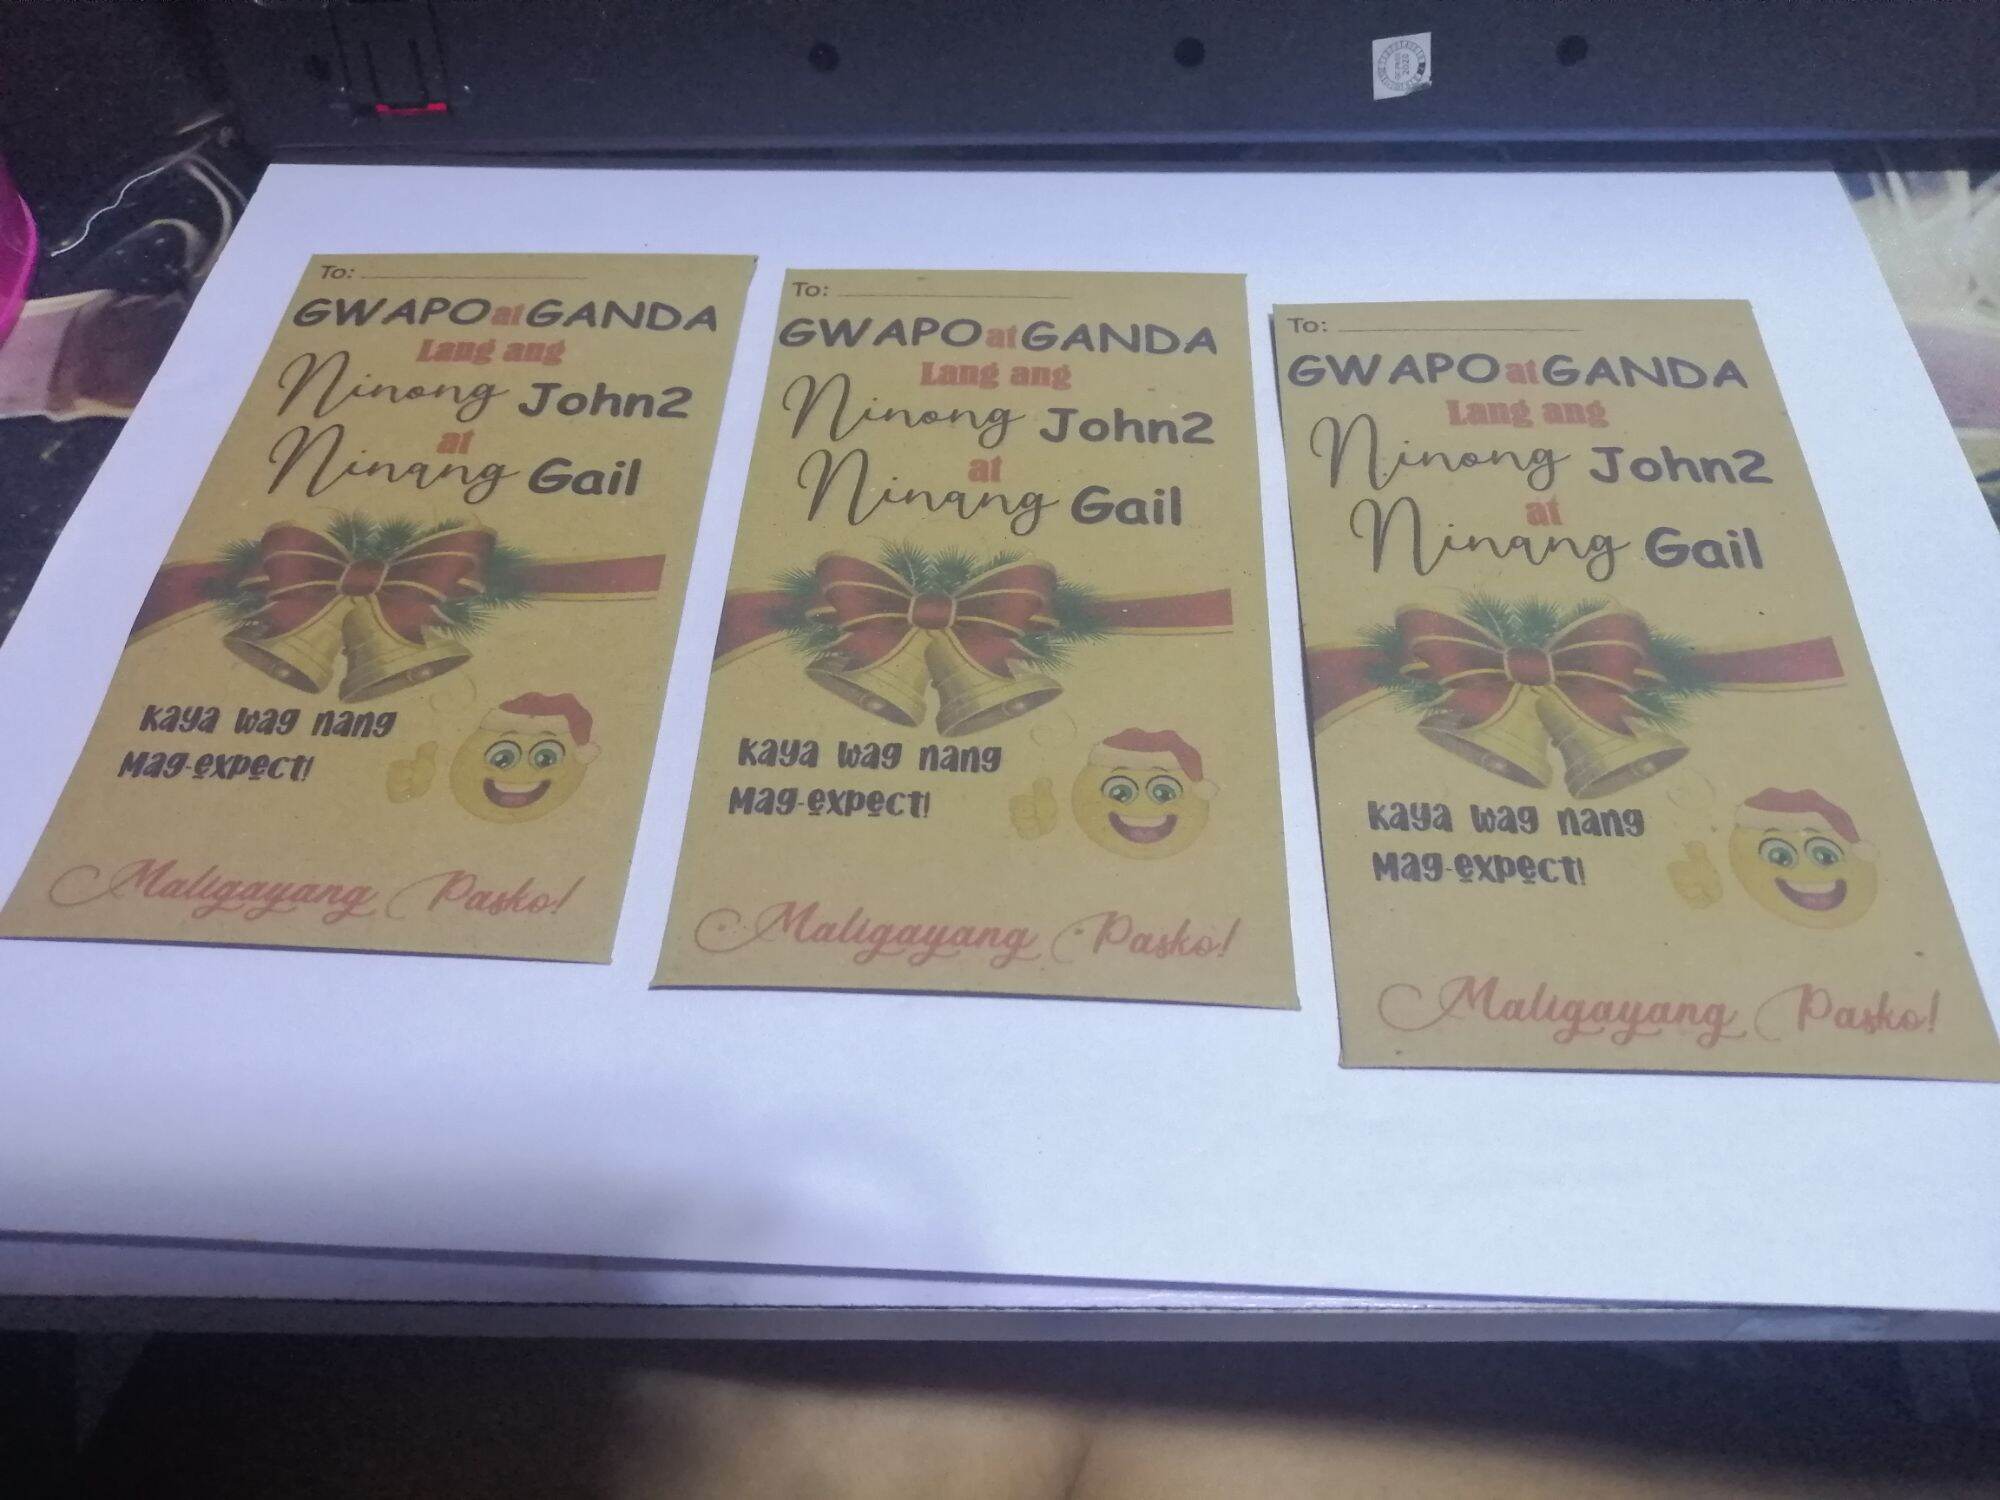 To:
GWAPO at GANDA
Lang ang
Ninong John2
at
Ninang Gail
Kaya wag nang
Mag-expect!
Maligayang Pasko!
To:
GWAPO at GANDA
Lang ang
Ninong John2
at
Ninang Gail
Kaya wag nang
Mag-expect!
Maligayang Pasko!
To:
GWAPO at GANDA
Lang ang
Ninong John2
at
Ninang Gail
Kaya wag nang
Mag-expect!
Maligayang Pasko!